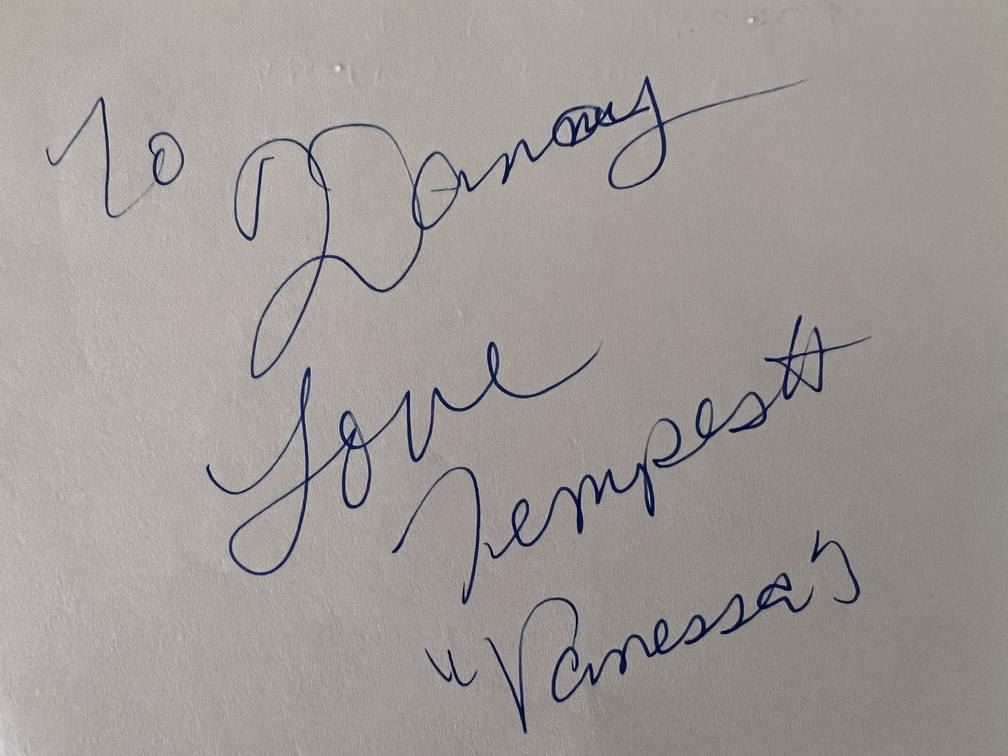 To Danny
Love
Tempestt
"Vanessa"